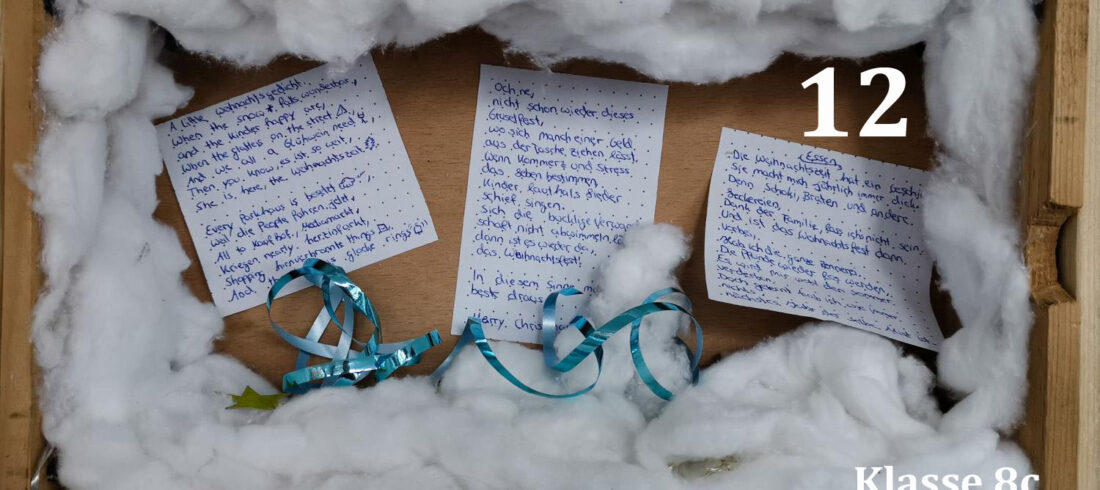 A little Weihnachtsgedicht.
When the snow falls wonderbar,
and the Kinder happy are,
When the Glatteis on the street,
And we all a Glühwein need,
Then, you know, es ist so weit,
She is here, the Weihnachtszeit.
Every Parkhaus is besetzt,
Weil die People fahren jetzt,
All to Kaufhof, Mediamarkt,
Kriegen nearly Herzinfarkt,
Shopping hirnverbrannte things
And the glocke rings
Och ne,
nicht schon wieder dieses
Gruselfest,
wo sich manch einer Geld
aus der Tasche ziehen lässt.
Wenn Kommerz und Stress
das Leben bestimmen,
Kinder lauthals Lieder
schief singen.
Sich die bucklige
schaft nicht abwimmeln
dann ist es wieder da,
das Weihnachtsfest!
In diesem Sinne
beste draus
Merry
12
Essen
Die Weihnachtszeit hat ein
Sie macht mich jährlich immer dick
Denn Schoki, Braten und andere
Leckereien,
Dank der Familie, lass ich nicht sein
Und ist das Weihnachtsfest dann
vorbei,
die ganze
Die Pfunde wieder los werden,
Es wird mir wohl den Sommer
verderben
Doch gelernt hab ich wie immer
nichts
nächsten
Klasse 8c